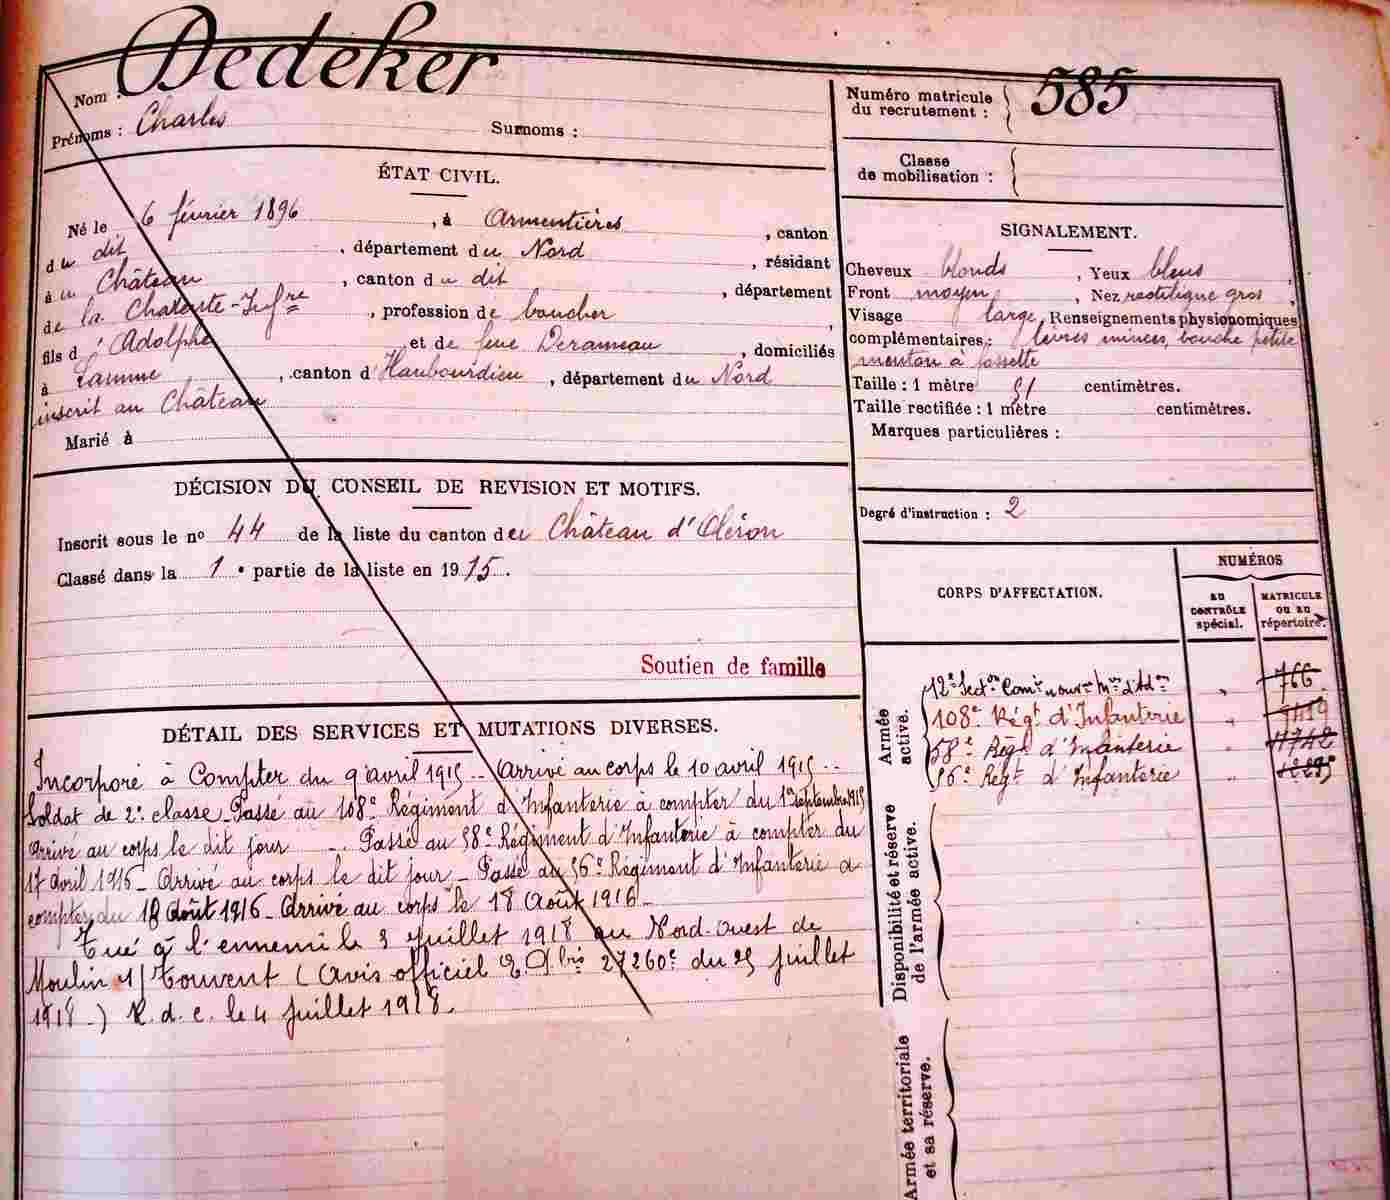 Nom : Dedeker
Prénoms : Charles Surnoms :
ÉTAT CIVIL.
Né le 6 février 1896, à Armentières, canton
du dit, département du Nord, résidant
à u Château, canton du dit, département
de la Charente-Infre, profession de boucher,
fils d'Adolphe et de feue Derameau, domiciliés
à, canton d'Haubourdieu, département du Nord
inscrit au Château
Marié à
DÉCISION DU CONSEIL DE REVISION ET MOTIFS.
Inscrit sous le no 44 de la liste du canton de Château d'Oléron
Classé dans la 1e partie de la liste en 1915.
Soutien de famille
DÉTAIL DES SERVICES ET MUTATIONS DIVERSES.
Incorporé à Compter du 9 avril 1915 - Arrivé au corps le 10 avril 1915 -
Soldat de 2e classe - Passé au 108e Régiment d'Infanterie à compter du 1er septembre 1915
Arrivé au corps le dit jour - Passé au 58e Régiment d'Infanterie à compter du
17 avril 1916 - Arrivé au corps le dit jour - Passé au 56e Régiment d'Infanterie à
compter du 18 Août 1916 - Arrivé au corps le 18 Août 1916 -
Tué à l'ennemi le 3 juillet 1918 au Nord-Ouest de
Moulin s/ Touvent (Avis officiel 27260 du 25 juillet
1918.) R. d. c. le 4 juillet 1918.
Numéro matricule
du recrutement : 585
Classe
de mobilisation :
SIGNALEMENT.
Cheveux blonds, Yeux bleus
Front moyen, Nez rectiligne gros,
Visage large, Renseignements physionomiques
complémentaires : lèvres minces, bouche petite
menton à fossette
Taille : 1 mètre 51 centimètres.
Taille rectifiée : 1 mètre centimètres.
Marques particulières :
Degré d'instruction : 2
CORPS D'AFFECTATION.
NUMÉROS
AU CONTRÔLE spécial.
MATRICULE OU AU répertoire.
Armée active.
12e Secton Comis ouvrs Mres d'Adon " 766
108e Régt d'Infanterie " 7419
58e Régt d'Infanterie " 11742
56e Régt d'Infanterie "
Disponibilité et réserve de l'armée active.
Armée territoriale et sa réserve.